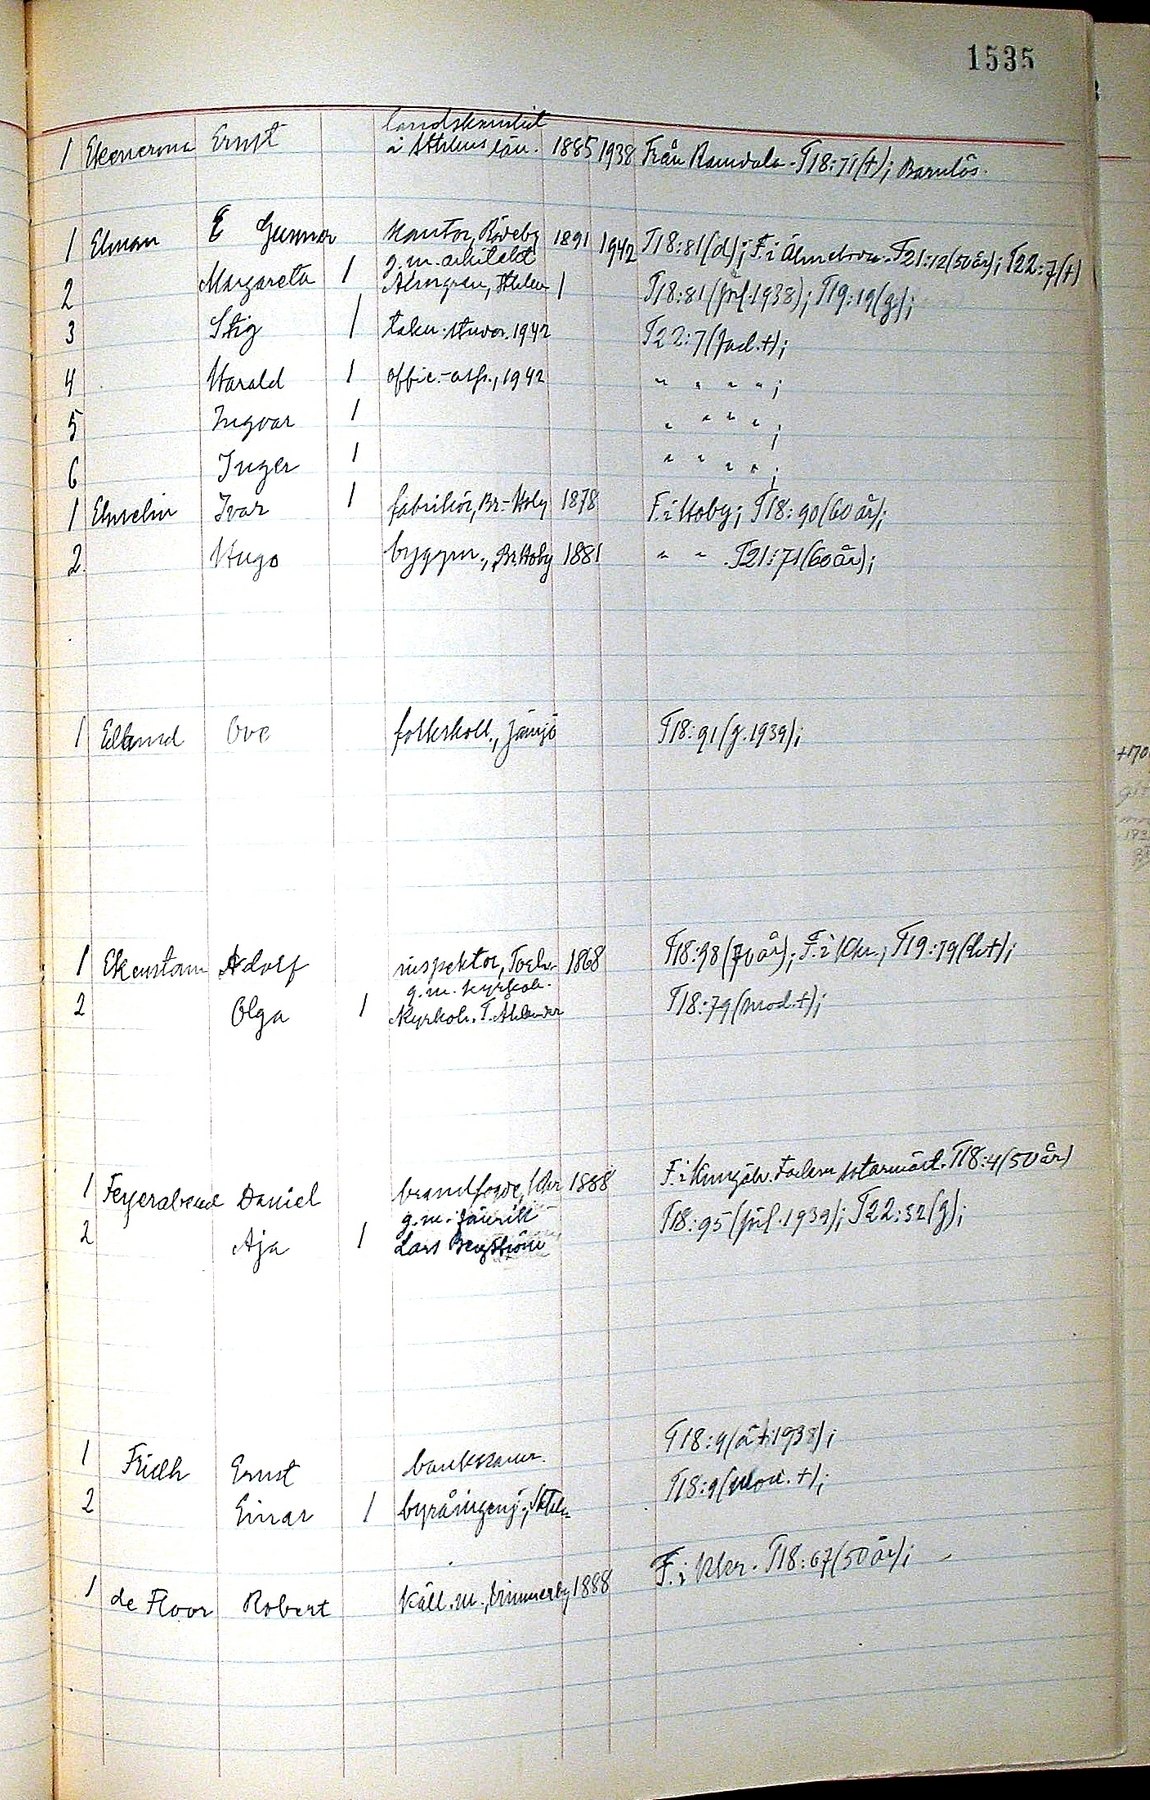 1535
landskanslist
1 Ekenerona Ernst i Sthlms län. 1885 1938 Från Ramdala. T18:71(+); Barnlös.
1 Elman E Gunnar kantor, Rödeby 1891 1942 T18:81(d); F. i Älmeboda. T21:12(50 år); T22:7(+)
g.m. arkitekt
2 Margareta 1 Almgren, Sthlm 1 T18:81(förl. 1938); T19:19(g);
3 Stig 1 tekn. studer. 1942 T22:7(fad.+);
4 Harald 1 offic.-asp., 1942 " " " ";
5 Ingvar 1 " " " " ;
6 Inger 1 " " " " ;
1 Elmelin Ivar 1 fabrikör, Br.-Hoby 1878 F. i Hoby; T18:90(60 år);
2 Hugo byggm., Br.Hoby 1881 " " . T21:71(60 år);
1 Edlund Ove folkskoll., Jämjö T18:91(g.1939);
1 Ekenstam Adolf inspektor, 1868 T18:98(70 år); F. i Khr.; T19:79(d+);
g.m. kyrkoh.
2 Olga 1 Kyrkoh. T. Ahlander T18:79(mod.+);
1 Feyerabend Daniel brandfogde, Khr 1888 F. i Kungälv. Fadern T18:4(50 år)
g.m. fänrik
2 Aja 1 Lars Bergström T18:95(förl. 1939); T22:32(g);
1 Fridh Ernst bankkamr. T18:9(+1938);
2 Einar 1 byråingenj., Sthlm T18:9(mod.+);
1 de Floor Robert käll.m., Vimmerby 1888 F. i Khr. T18:67(50 år);